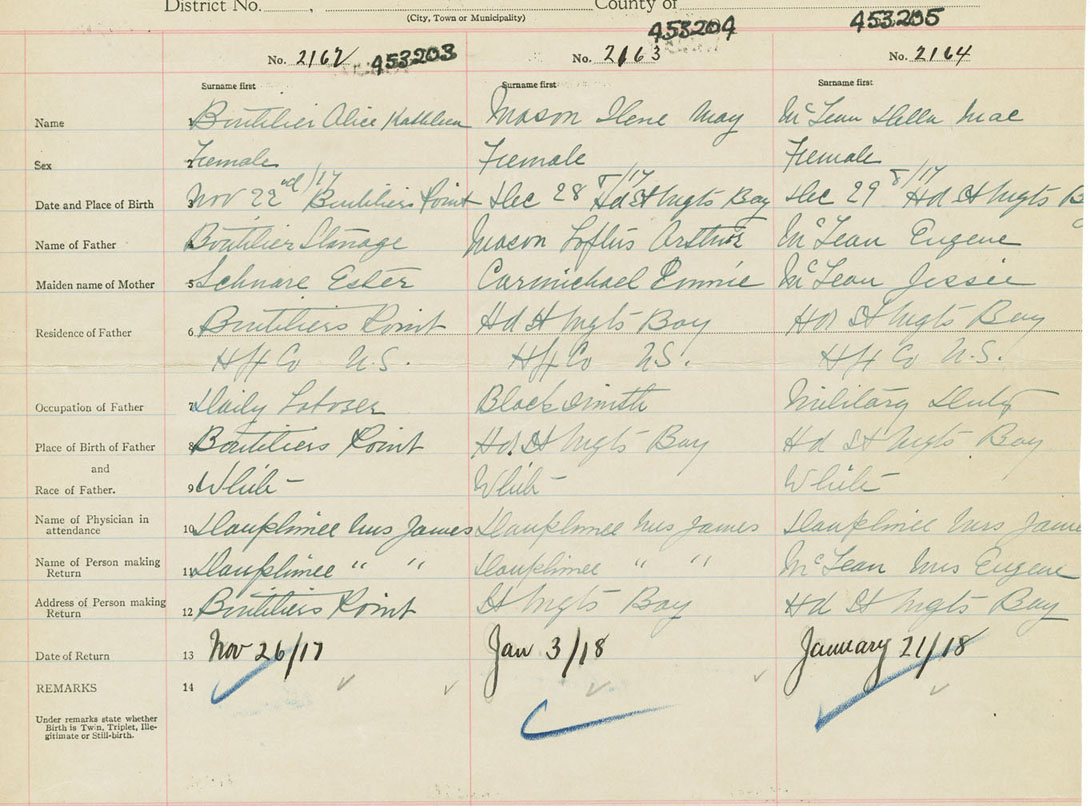 District No. , County of
(City, Town or Municipality)
453203 453204 453205
No. 2162 No. 2163 No. 2164
Surname first Surname first Surname first
Name 1 Boutilier Alice Kathleen Mason Ilene May McLean Della Mae
Sex 2 Female Female Female
Date and Place of Birth 3 Nov 22nd/17 Boutiliers Point Dec 28th/17 Hd St Mgts Bay Dec 29th/17 Hd St Mgts B
Name of Father 4 Boutilier Stanage Mason Loftus Arthur McLean Eugene
Maiden name of Mother 5 Schnare Ester Carmichael Ennnie McLean Jessie
Residence of Father 6 Boutiliers Point Hd St Mgts Bay Hd St Mgts Bay
Hfx Co N.S. Hfx Co N.S. Hfx Co N.S.
Occupation of Father 7 Daily Laborer Blacksmith Military Duty
Place of Birth of Father 8 Boutiliers Point Hd. St Mgts Bay Hd St Mgts Bay
and
Race of Father. 9 White White White
Name of Physician in
attendance 10 Dauphinee Mrs James Dauphinee Mrs James Dauphinee Mrs Jame
Name of Person making
Return 11 Dauphinee " " Dauphinee " " McLean Mrs Eugene
Address of Person making
Return 12 Boutiliers Point St Mgts Bay Hd St Mgts Bay
Date of Return 13 Nov 26/17 Jan 3/18 January 21/18
REMARKS 14
Under remarks state whether
Birth is Twin, Triplet, Ille-
gitimate or Still-birth.